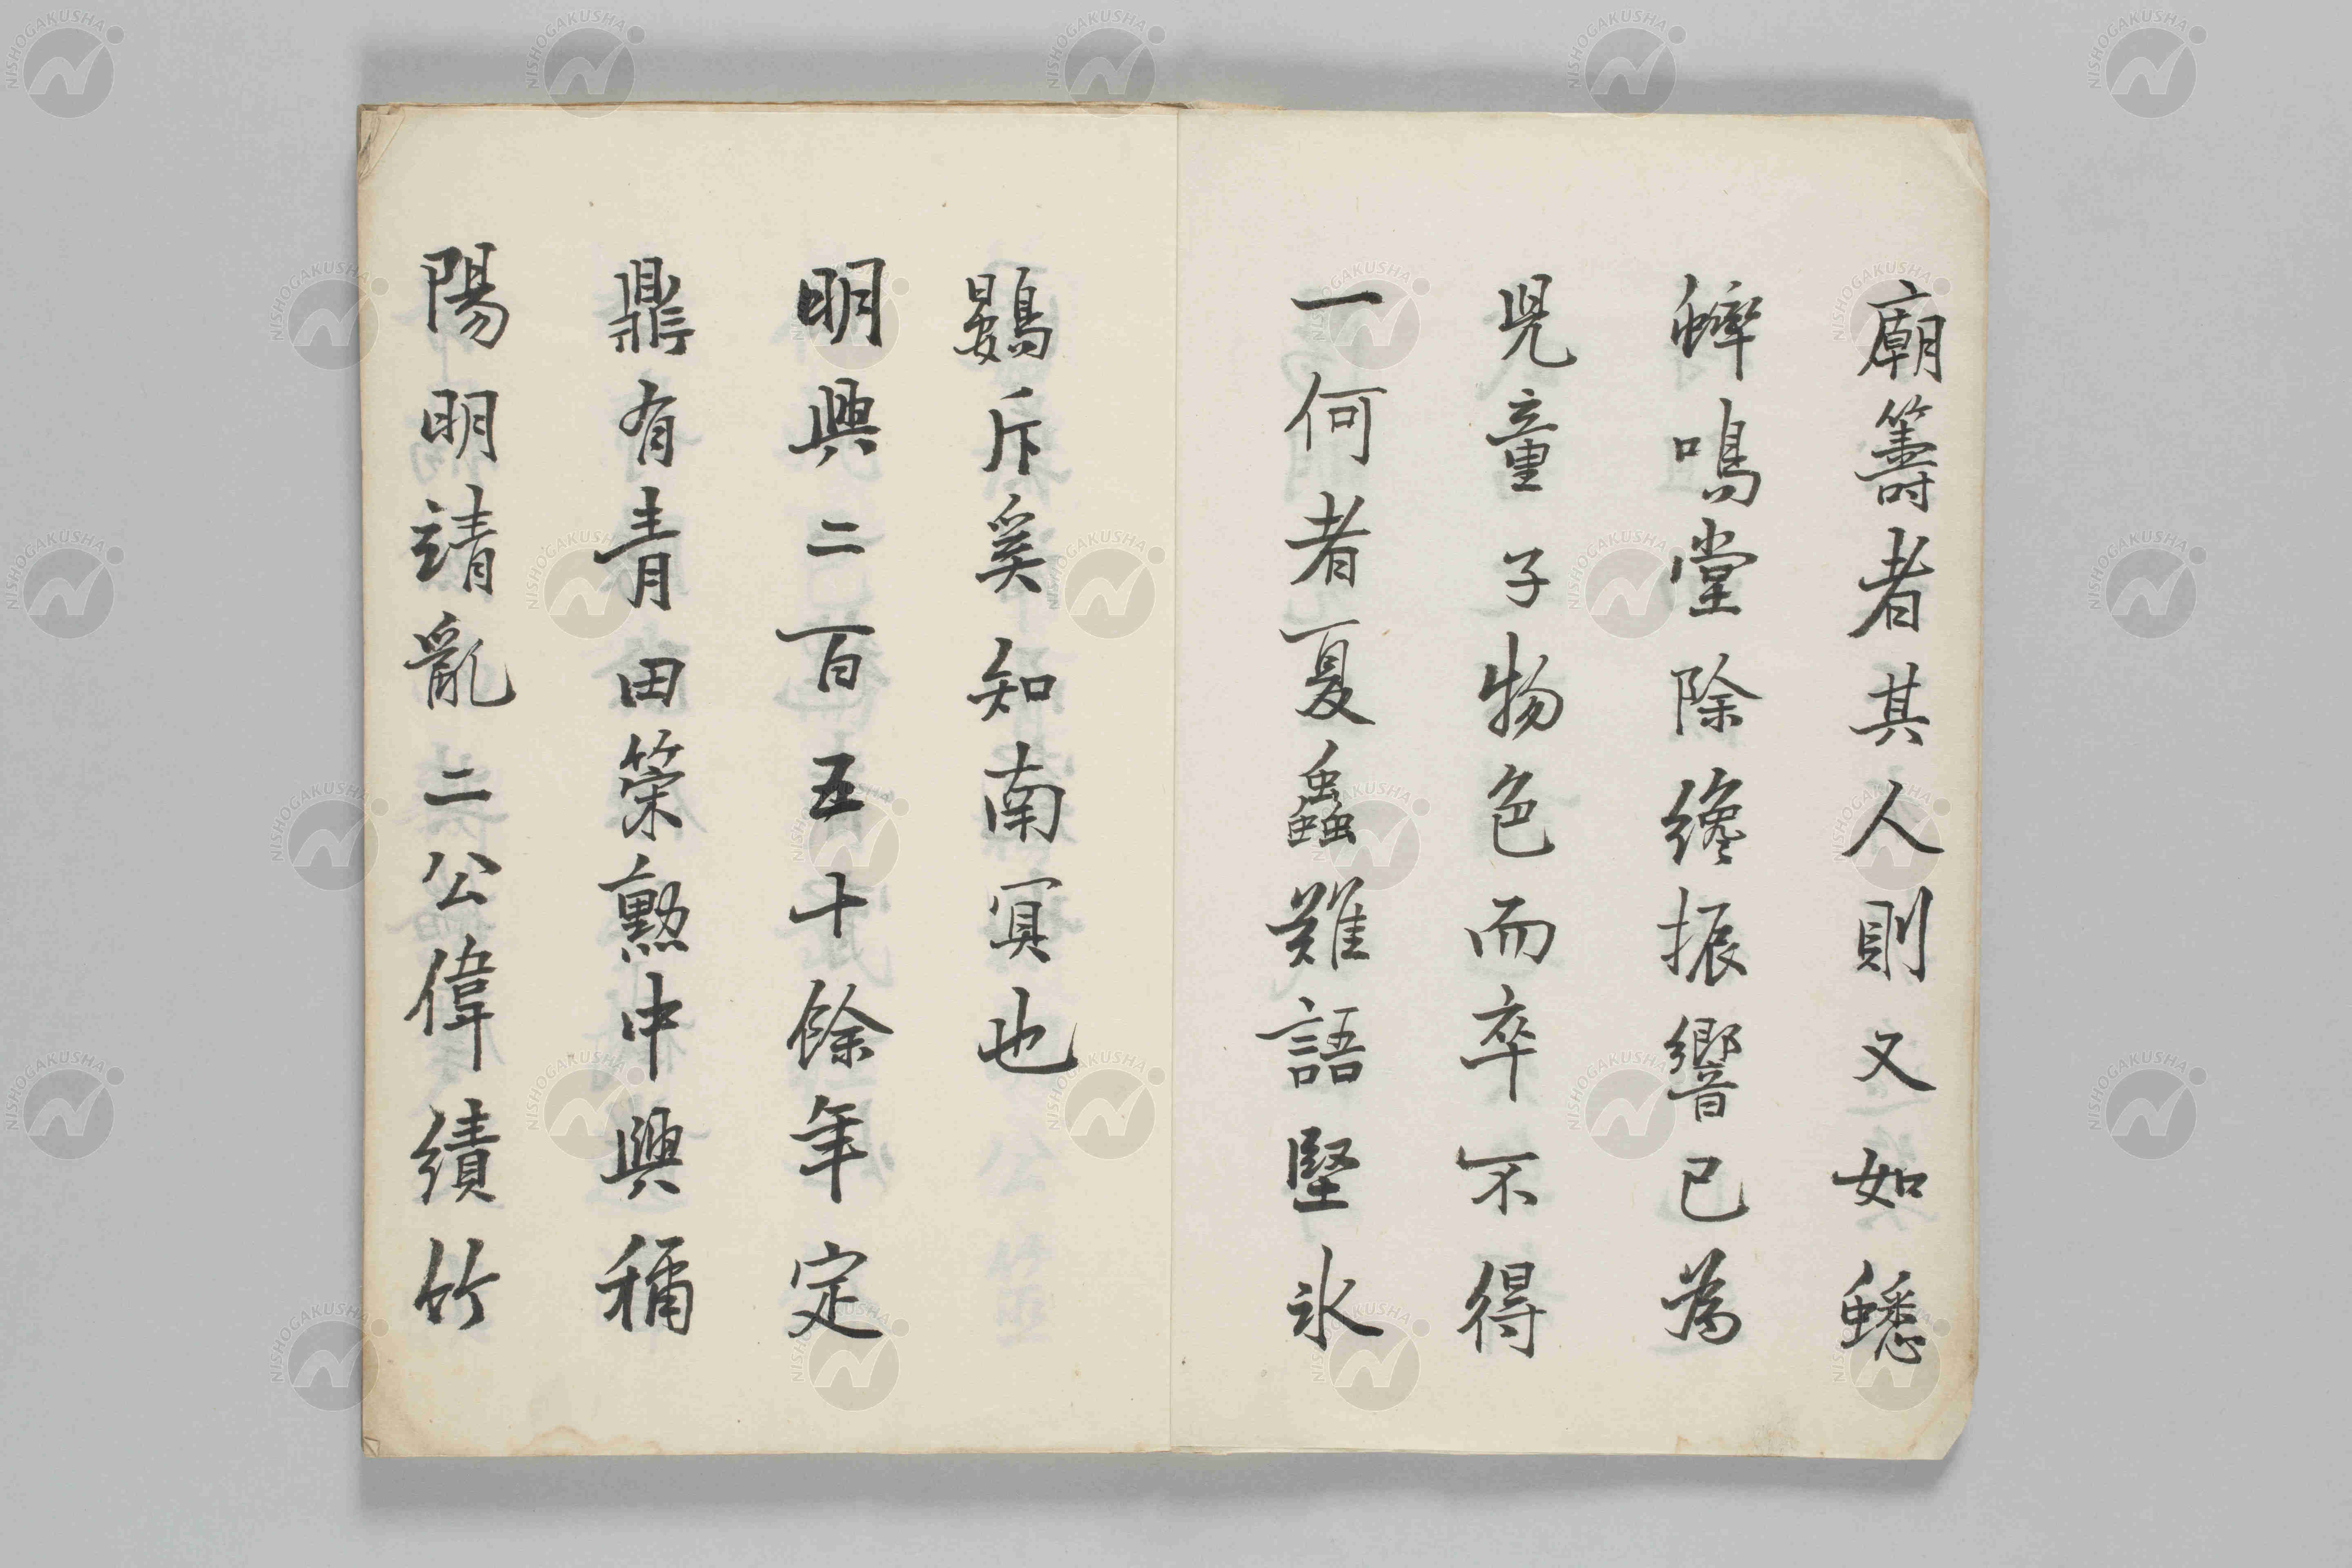 廟籌者其人則又如蟋
蟀鳴堂除纔振響已為
児童子物色而卒不得
一何者夏蟲難語堅氷
鷃斥奚知南冥也
明興二百五十餘年定
鼎有青田策勲中興稱
陽明靖亂二公偉績竹
NISHOGAKUSHA